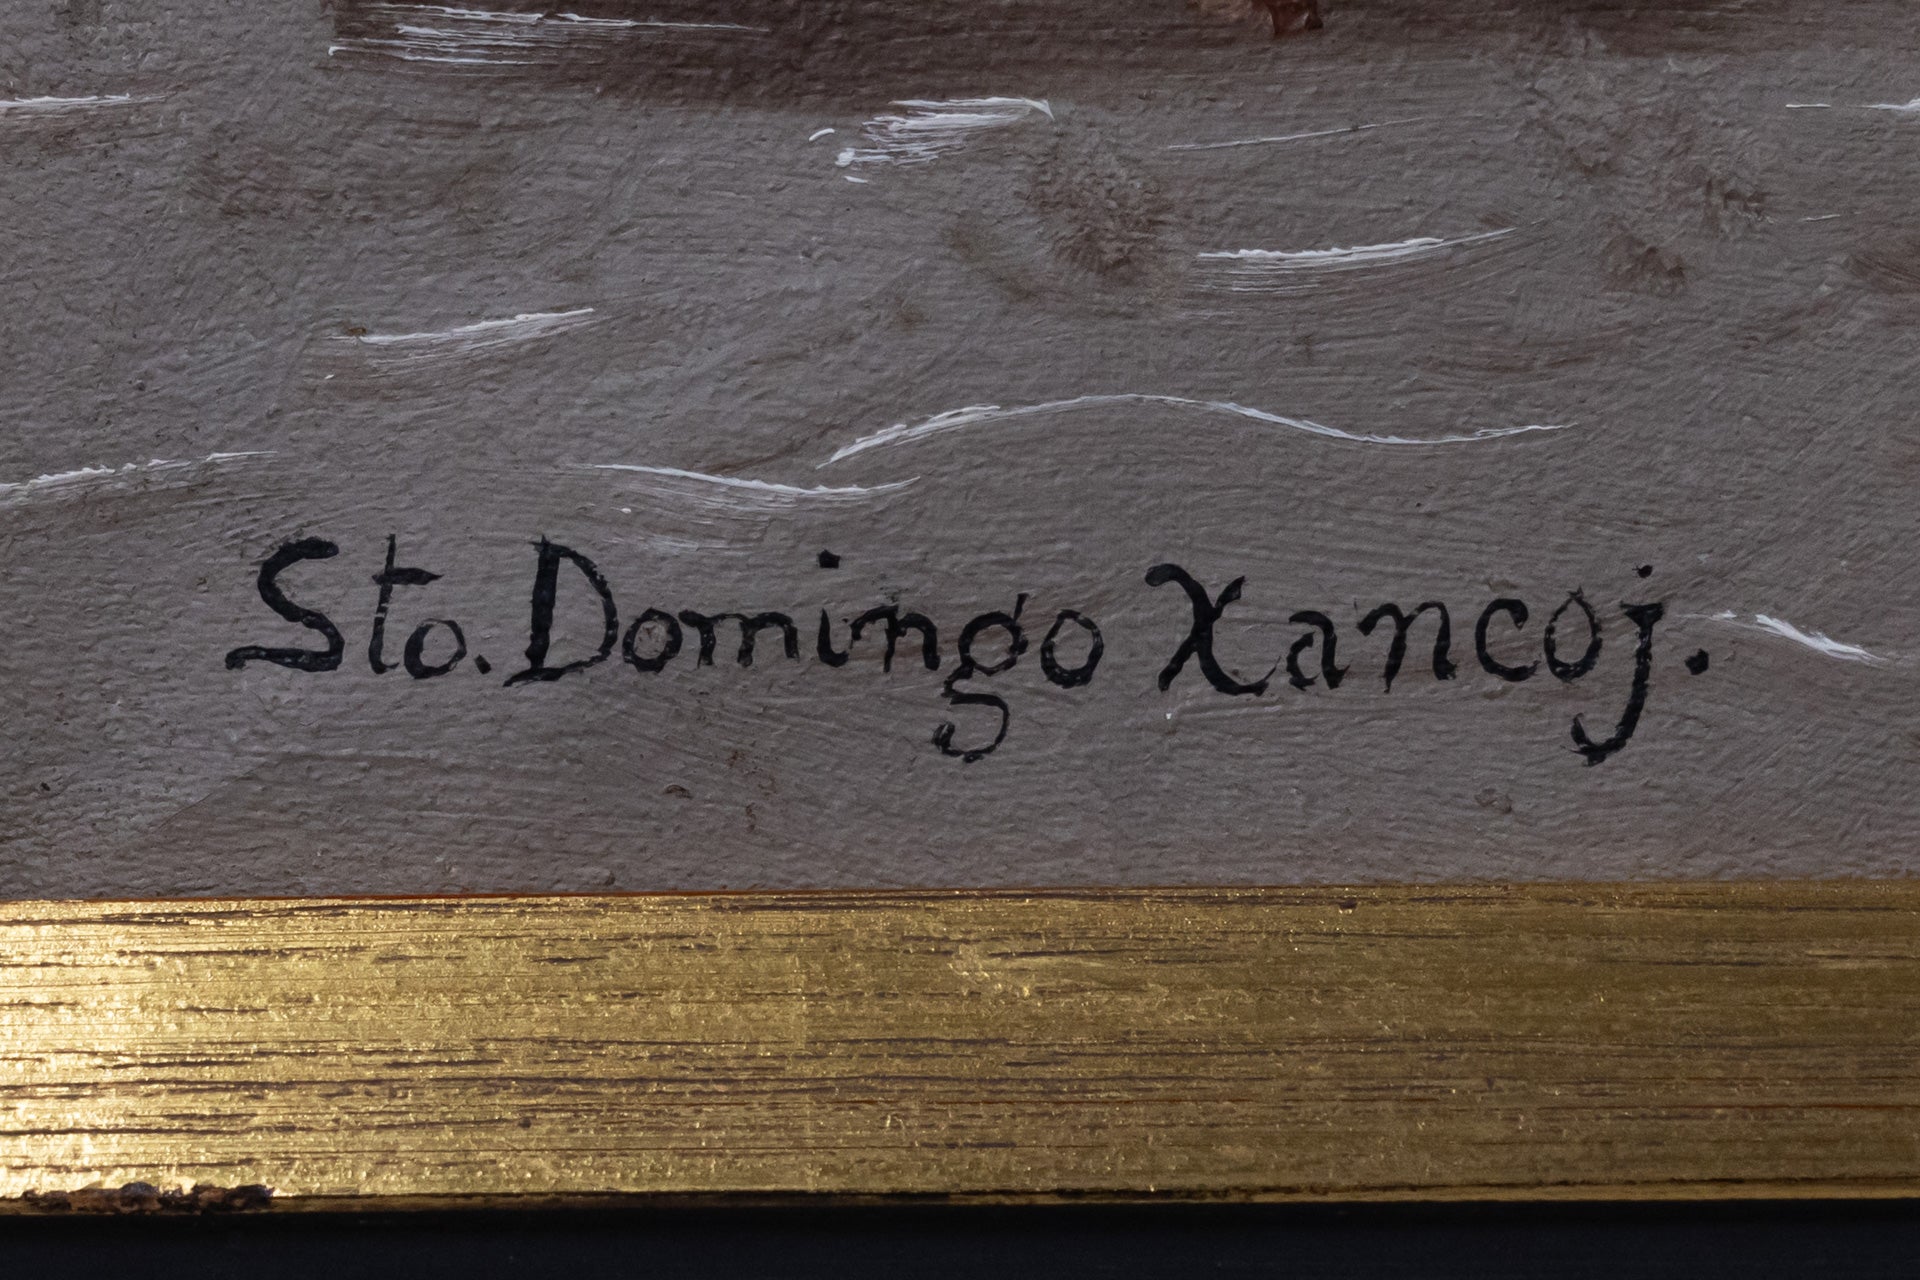 Sto. Domingo Xancoj.